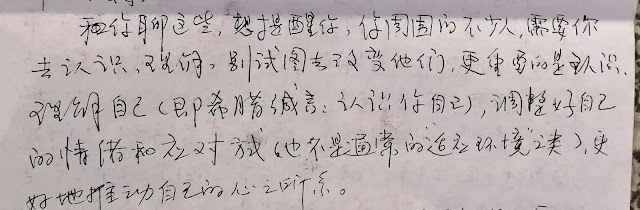 和你聊这些，想提醒你，你周围的不少人，需要你
去认识、理解，别试图去改变他们，更重要的是认识、
理解自己（即希腊箴言：认识你自己），调整好自己
的情绪和应对方式（也不是通常的“适应环境”之类），更
好地推动自己的心之所系。